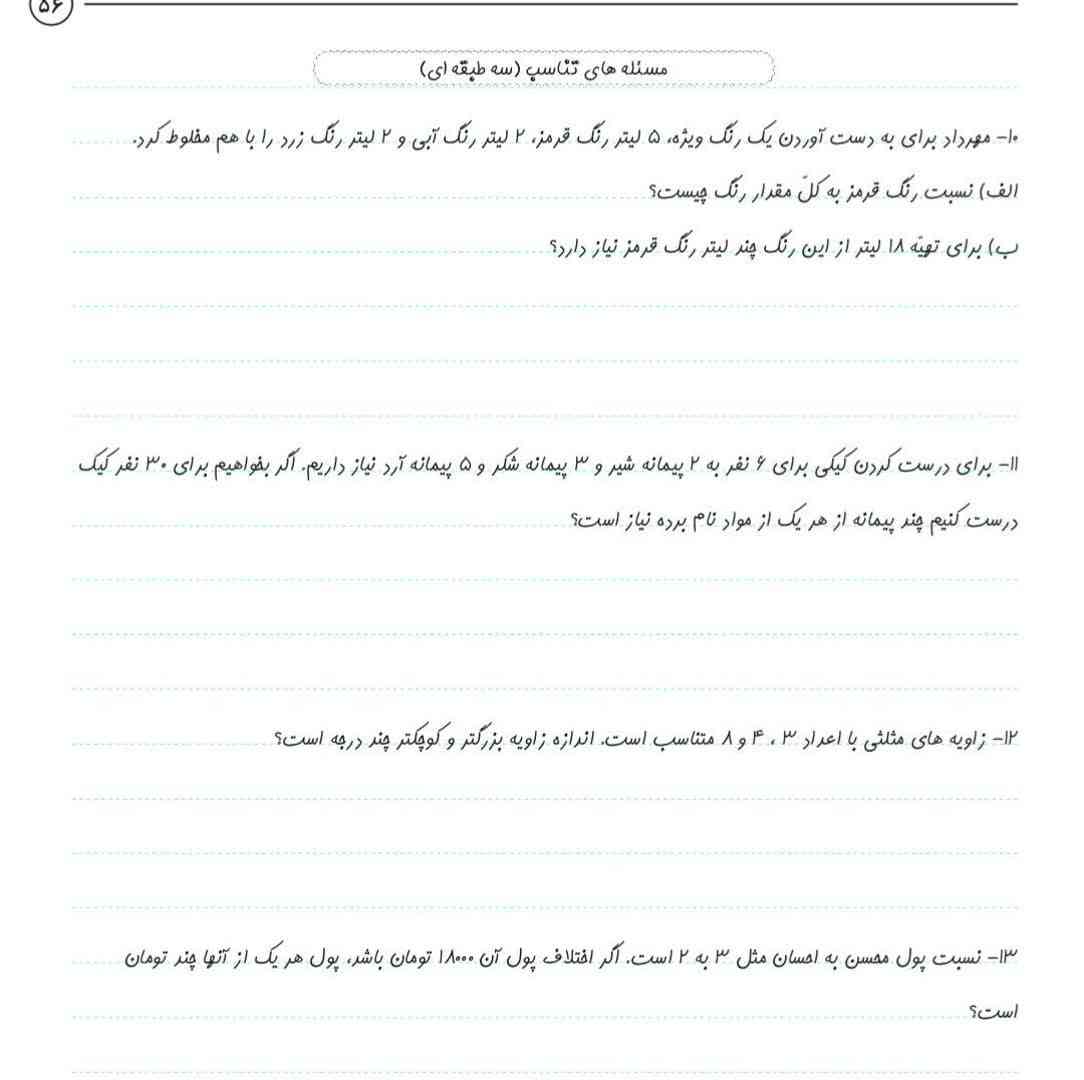 ۵۶
مسئله های تناسب (سه طبقه ای)
۱۰- مهرداد برای به دست آوردن یک رنگ ویژه، ۵ لیتر رنگ قرمز، ۲ لیتر رنگ آبی و ۲ لیتر رنگ زرد را با هم مخلوط کرد.
الف) نسبت رنگ قرمز به کلّ مقدار رنگ چیست؟
ب) برای تهیّه ۱۸ لیتر از این رنگ چند لیتر رنگ قرمز نیاز دارد؟
۱۱- برای درست کردن کیکی برای ۶ نفر به ۲ پیمانه شیر و ۳ پیمانه شکر و ۵ پیمانه آرد نیاز داریم. اگر بخواهیم برای ۳۰ نفر کیک
درست کنیم چند پیمانه از هر یک از مواد نام برده نیاز است؟
۱۲- زاویه های مثلثی با اعداد ۳ ، ۴ و ۸ متناسب است. اندازه زاویه بزرگتر و کوچکتر چند درجه است؟
۱۳- نسبت پول محسن به احسان مثل ۳ به ۲ است. اگر اختلاف پول آن ۱۸۰۰۰ تومان باشد، پول هر یک از آنها چند تومان
است؟